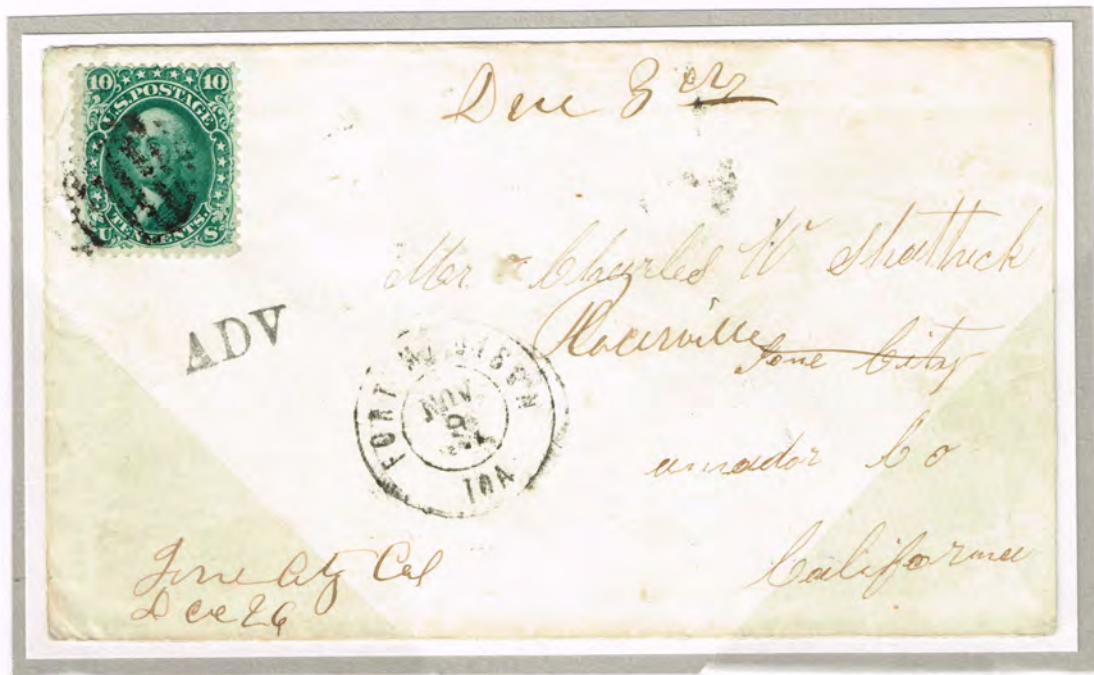 10 10
U.S. POSTAGE
TEN CENTS.
U S
Due 3 cts
Mr. Charles W Shattuck
Placerville Ione City
amador Co
California
ADV
FORT MADISON
NOV
IOA
Ione City Cal
Dec 26